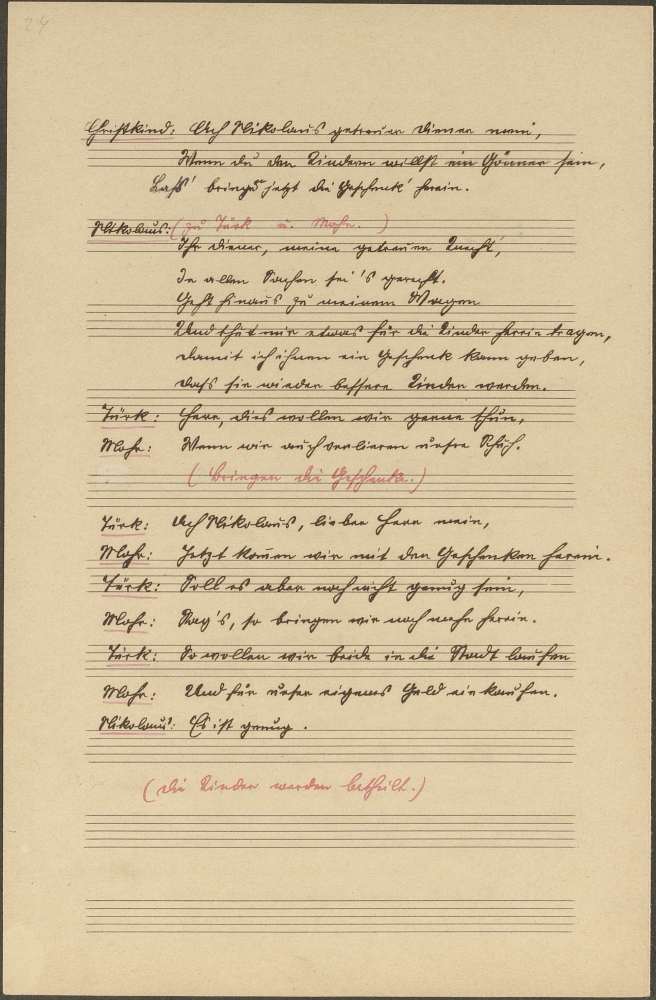 24
Christkind: Ach Nikolaus getreuer Diener mein,
Wenn du den Kindern willst ein Gönner sein,
Lass' bringen jetzt die Geschenk' herein.
Nikolaus: (zu Türk u. Mohr.)
Ihr Diener, meine getreuen Knecht',
In allen Sachen sei's gerecht.
Geht hinaus zu meinem Wagen
Und thüt mir etwas für die Kinder herein tragen,
Damit ich ihnen ein Geschenk kann geben,
Dass sie wieder bessere Kinder werden.
Türk: Herr, dies wollen wir gerne thun,
Mohr: Wenn wir auch verlieren unsre Schuh.
(Bringen die Geschenke.)
Türk: Ach Nikolaus, lieber Herr mein,
Mohr: Jetzt kom̄en wir mit den Geschenken herein.
Türk: Soll es aber noch nicht genug sein,
Mohr: Sag's, so bringen wir noch mehr herein.
Türk: So wollen wir beide in die Stadt laufen
Mohr: Und für unser eigenes Geld einkaufen.
Nikolaus: Es ist genug.
(Die Kinder werden betheilt.)